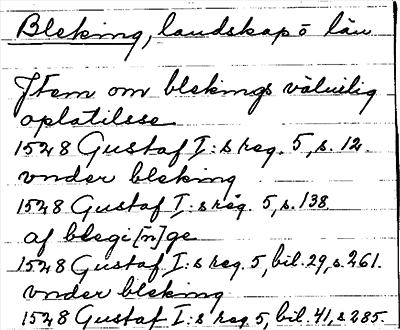 Bleking, landskap o län
Jtem om blekings väluilig
oplatilsse
1528 Gustaf I:s reg. 5, s. 12.
vnder bleking
1528 Gustaf I:s reg. 5, s. 138
af blegi[n]ge
1528 Gustaf I:s reg. 5, bil. 29, s. 261.
vnder bleking
1528 Gustaf I:s reg 5, bil. 41, s 285.